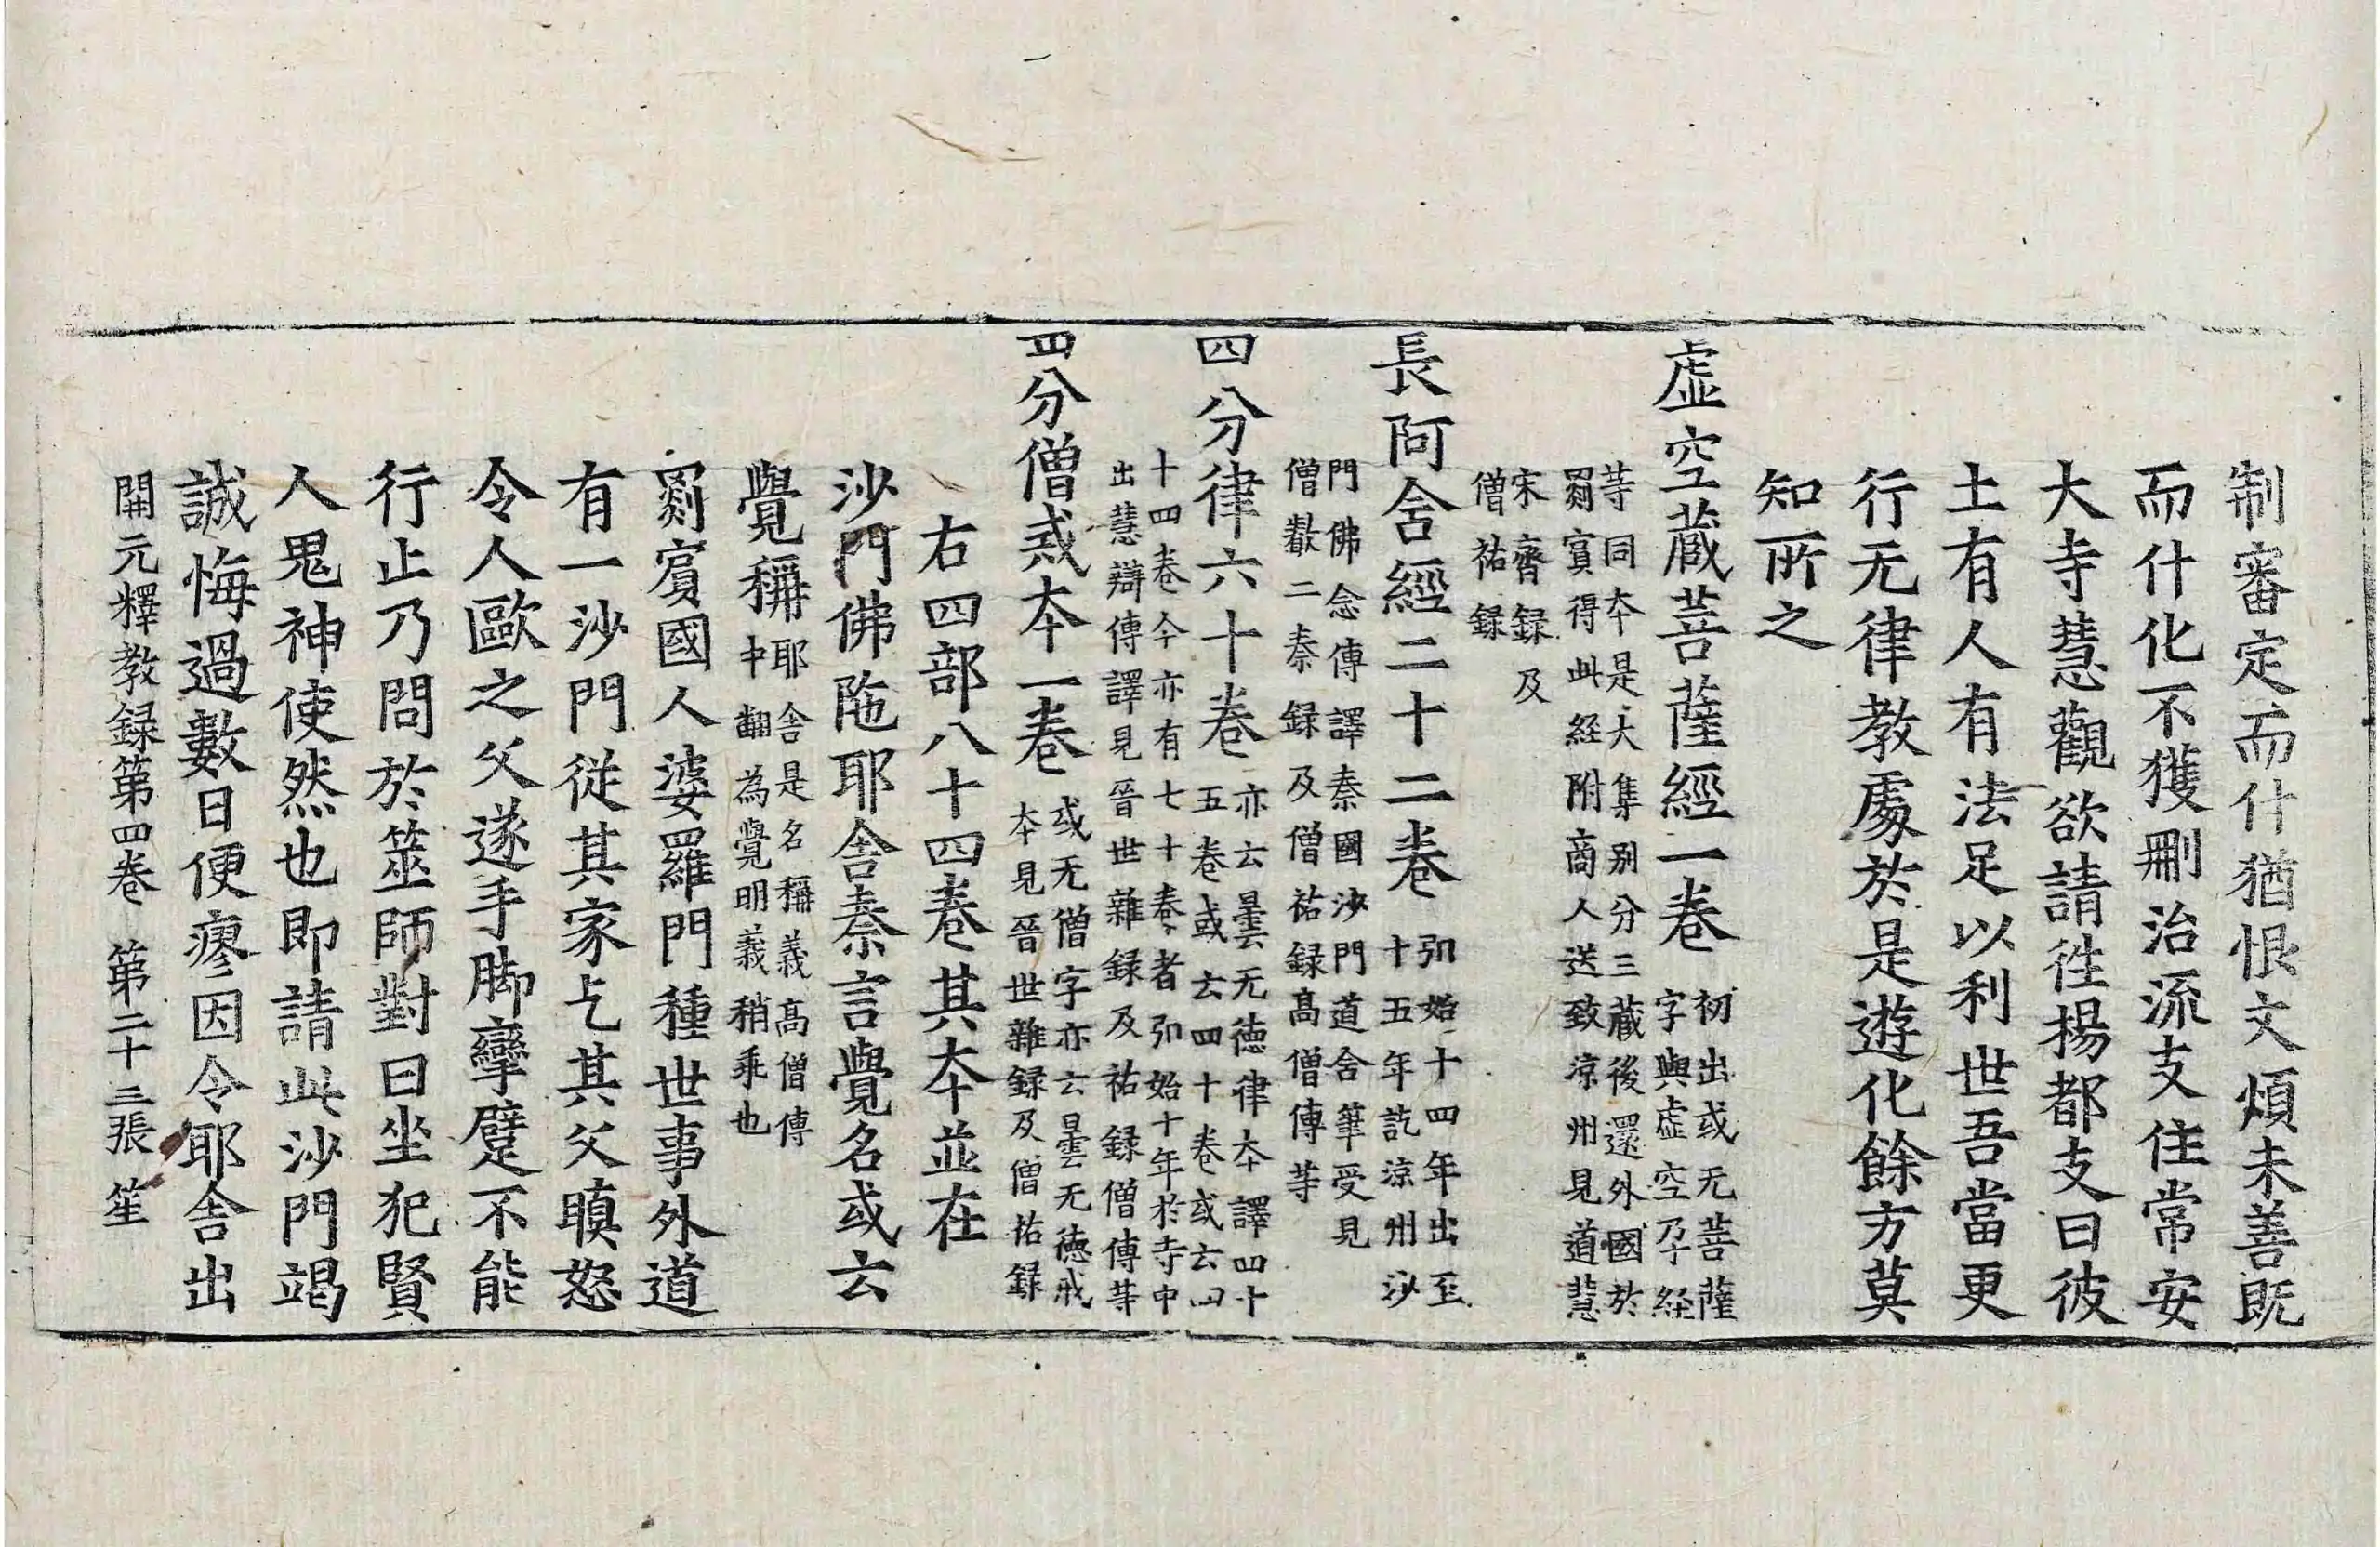 制審定而什猶恨文煩未善既
而什化不獲刪治流支住常安
大寺慧觀欲請徃楊都支曰彼
土有人有法足以利世吾當更
行无律教處於是遊化餘方莫
知所之
虛空藏菩薩經一卷 初出或无菩薩
字與虛空孕経
等同夲是大集别分三藏後還外國於
罽賓得此経附商人送致涼州見道慧
宋齊録及
僧祐録
長阿含經二十二卷 弘始十四年出至
十五年訖涼州沙
門佛念傳譯秦國沙門道含筆受見
僧叡二秦録及僧祐録髙僧傳等
四分律六十卷 亦云曇无德律夲譯四十
五卷或云四十卷或六四
十四卷今亦有七十卷者弘始十年於寺中
出慧辯傳譯見晉世雜録及祐録僧傳等
四分僧戒夲一卷 或无僧字亦云曇无德戒
夲見晉世雜録及僧祐録
右四部八十四卷其夲並在
沙門佛陁耶舍秦言覺名或云
覺稱 耶舍是名稱義髙僧傳
中翻為覺明義稍乖也
罽賓國人婆羅門種世事外道
有一沙門従其家乞其父瞋怒
令人歐之父遂手脚攣躄不能
行止乃問於筮師對曰坐犯賢
人鬼神使然也即請此沙門竭
誠悔過數日便瘳因令耶舍出
開元釋教録第四卷 第二十三張 笙